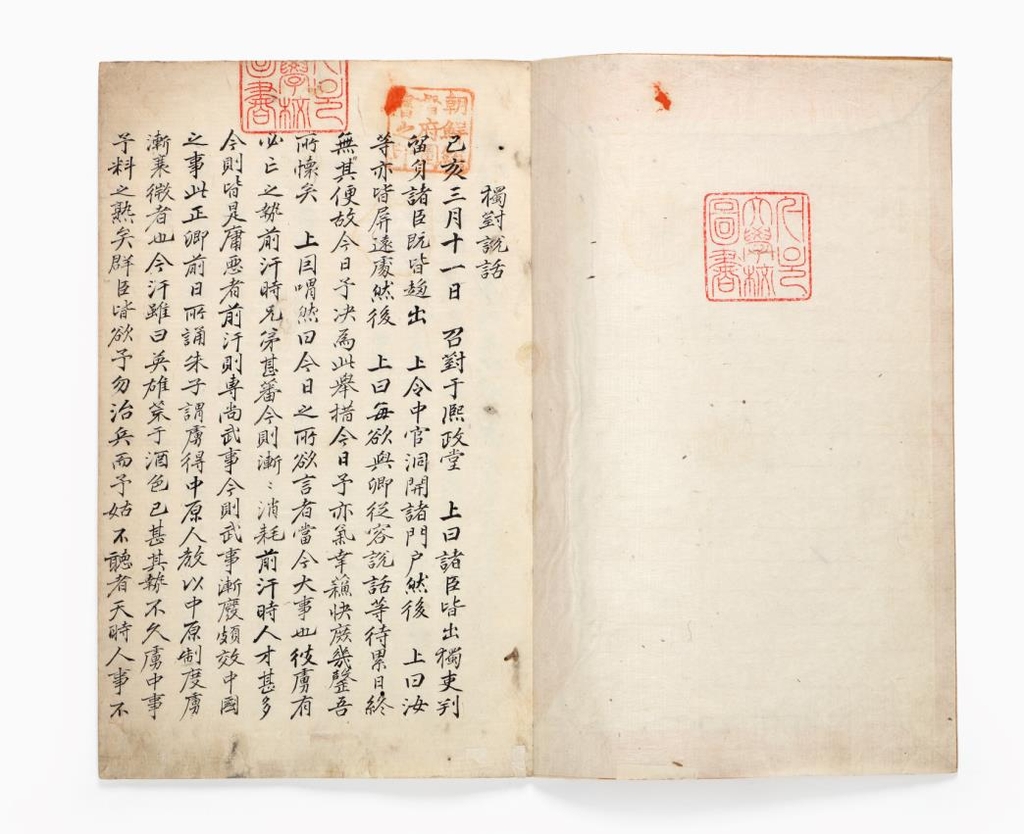 서울
大學校
圖書
朝鮮總
督府圖
書之印
獨對說話
己亥三月十一日 召對于熙政堂 上曰諸臣皆出獨吏判
留身諸臣旣皆趨出 上令中官洞開諸門戶然後 上曰汝
等亦皆屛遠處然後 上曰每欲與卿從容說話等待累日終
無其便故今日予決爲此擧措今日予亦氣幸蘓快庶幾盡吾
所懷矣 上因喟然曰今日之所欲言者當今大事也彼虜有
必亡之勢前汗時兄弟甚蕃今則漸〻消耗前汗時人才甚多
今則皆是庸惡者前汗則專尙武事今則武事漸廢頗效中國
之事此正卿前日所誦朱子謂虜得中原人敎以中原制度虜
漸衰微者也今汗雖曰英雄荒于酒色已甚其勢不久虜中事
予料之熟矣群臣皆欲予勿治兵而予姑不聽者天時人事不